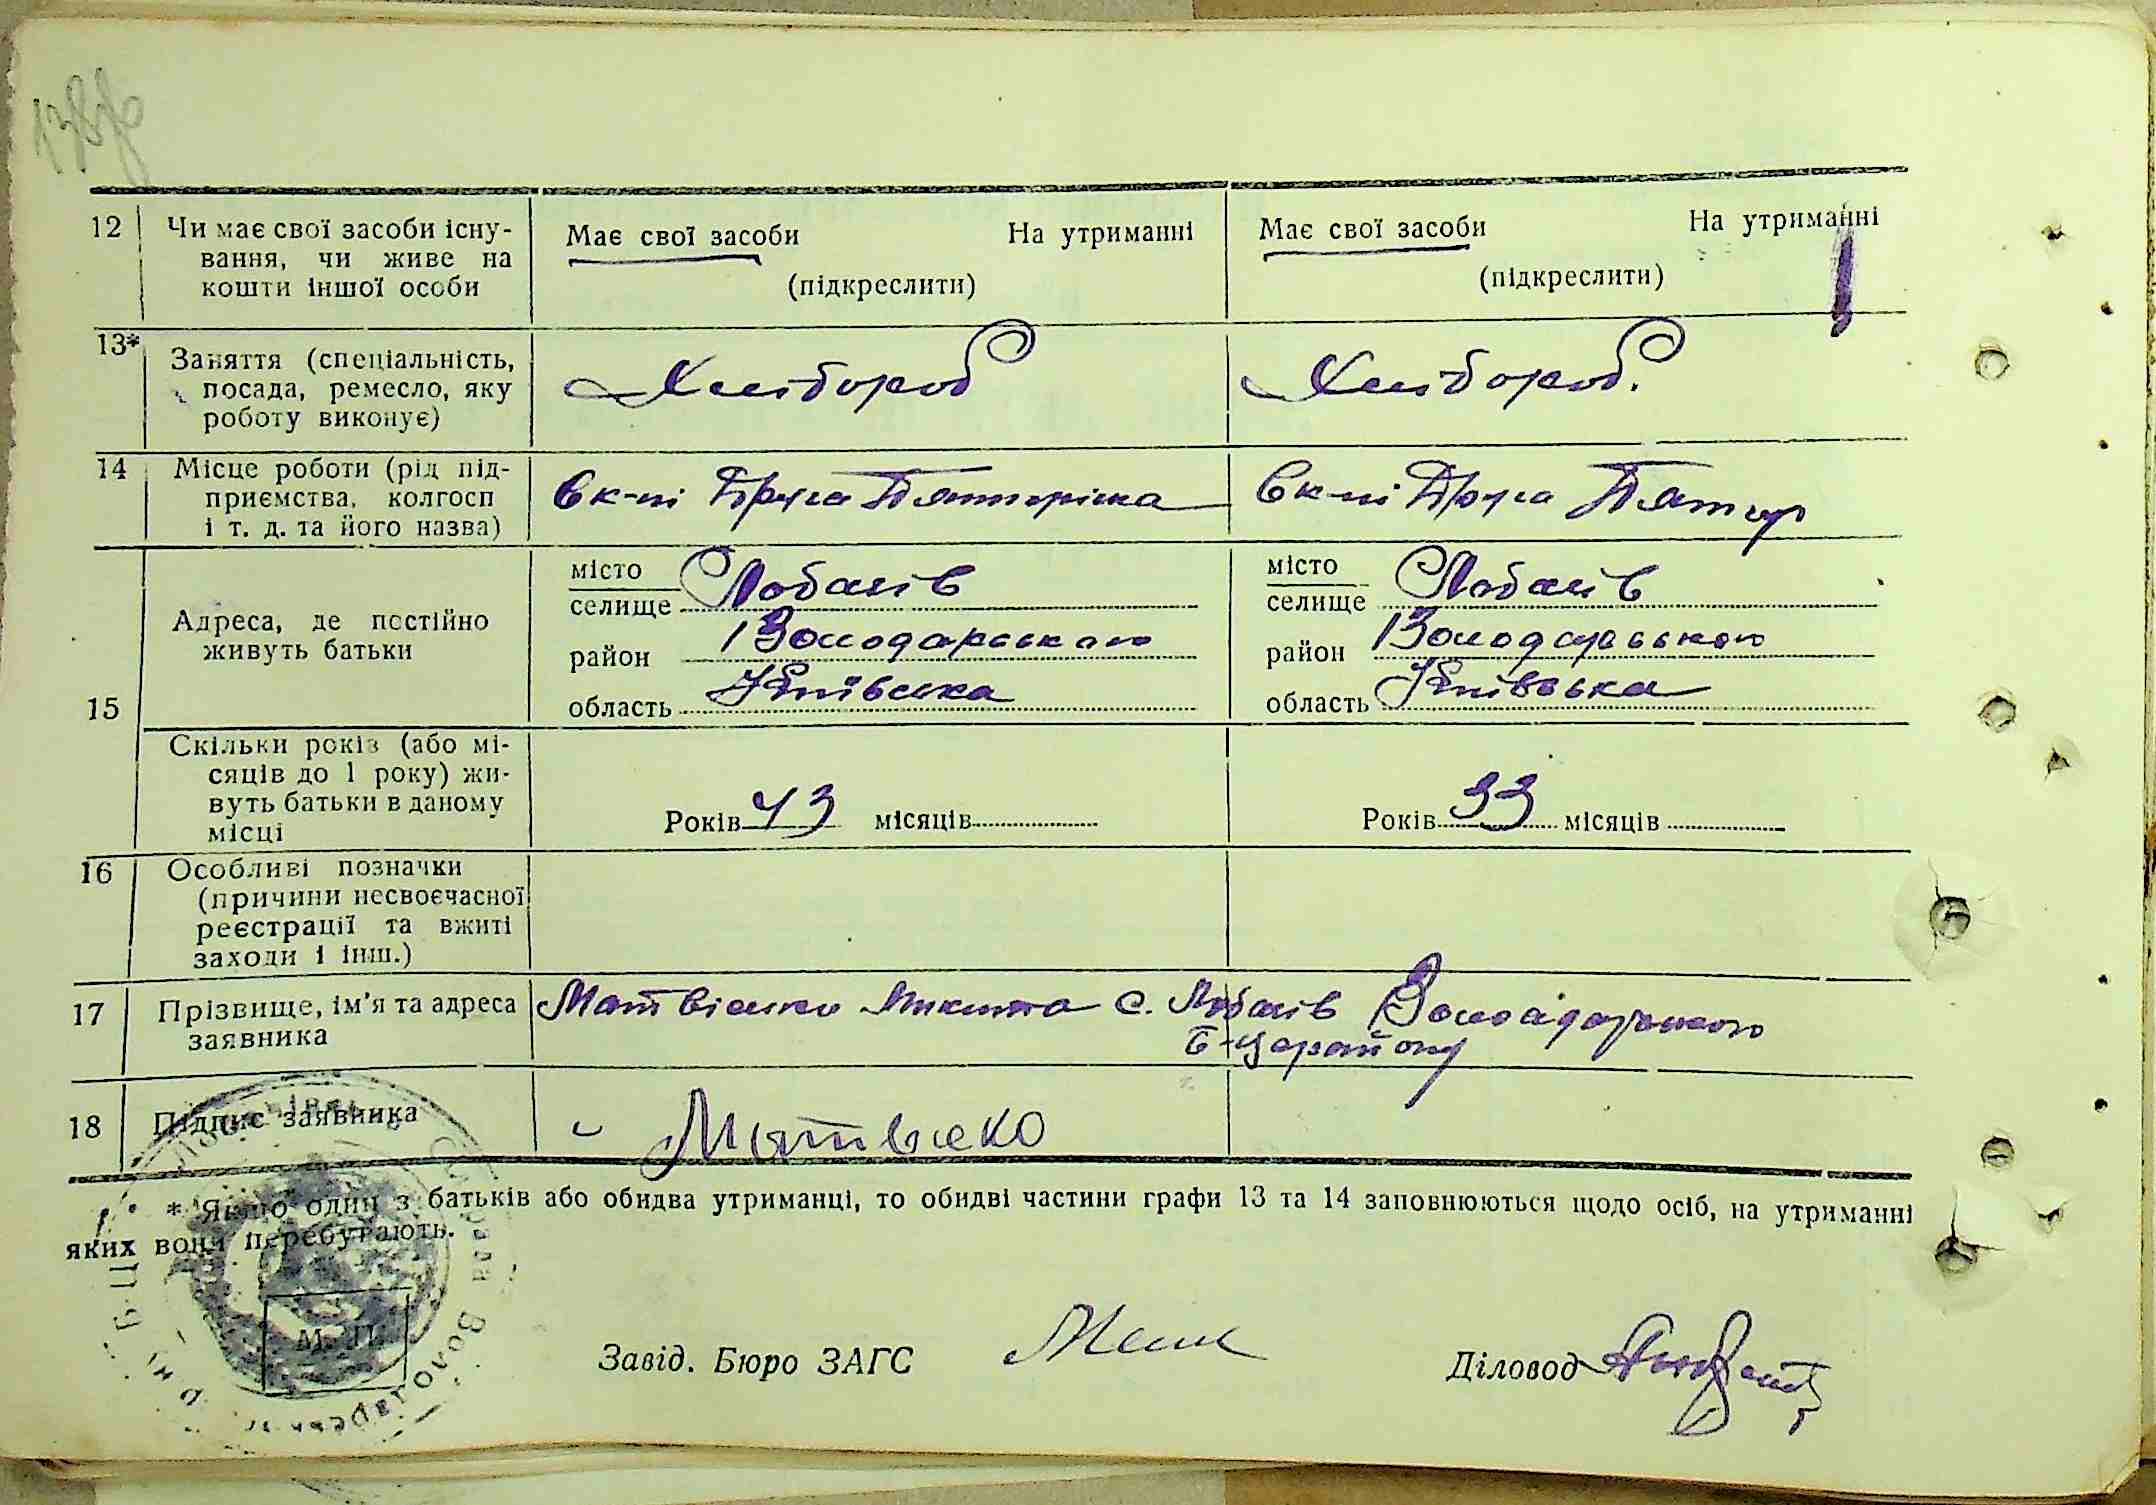 12 Чи має свої засоби існу-
вання, чи живе на
кошти іншої особи
Має свої засоби На утриманні
(підкреслити)
Має свої засоби На утриманні
(підкреслити)
13* Заняття (спеціальність,
посада, ремесло, яку
роботу виконує)
Хлібороб
Хлібороб.
14 Місце роботи (рід під-
приємства, колгосп
і т. д. та його назва)
Друга Пятирічка
Друга Пятир
15 Адреса, де постійно
живуть батьки
місто
селище С Лобачів
район Володарського
область Київська
місто
селище С Лобачів
район Володарського
область Київська
Скільки років (або мі-
сяців до 1 року) жи-
вуть батьки в даному
місці
Років 43 місяців
Років 33 місяців
16 Особливі позначки
(причини несвоєчасної
реєстрації та вжиті
заходи і інш.)
17 Прізвище, ім'я та адреса
заявника
Матвієнко Микита с. Лобачів Володарського
Б-Ц району
18 Підпис заявника
Матвієко
* Якщо один з батьків або обидва утриманці, то обидві частини графи 13 та 14 заповнюються щодо осіб, на утриманні
яких вони перебувають.
М. П.
Завід. Бюро ЗАГС
Діловод